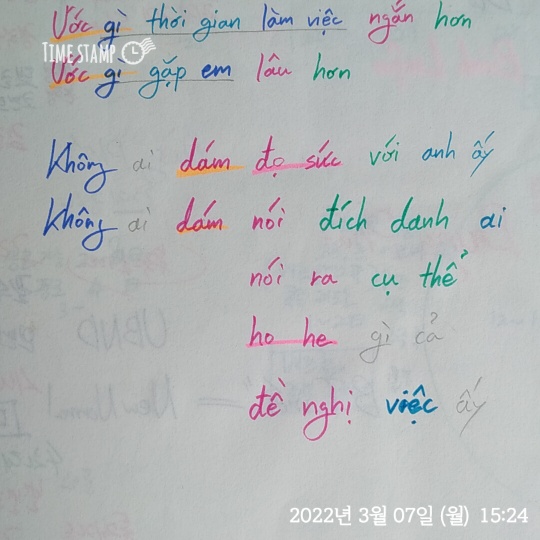 Ước gì thời gian làm việc ngắn hơn
TIME STAMP
Ước gì gặp em lâu hơn
Không ai dám đọ sức với anh ấy
Không ai dám nói đích danh ai
nói ra cụ thể
ho he gì cả
đề nghị việc ấy
2022년 3월 07일 (월) 15:24